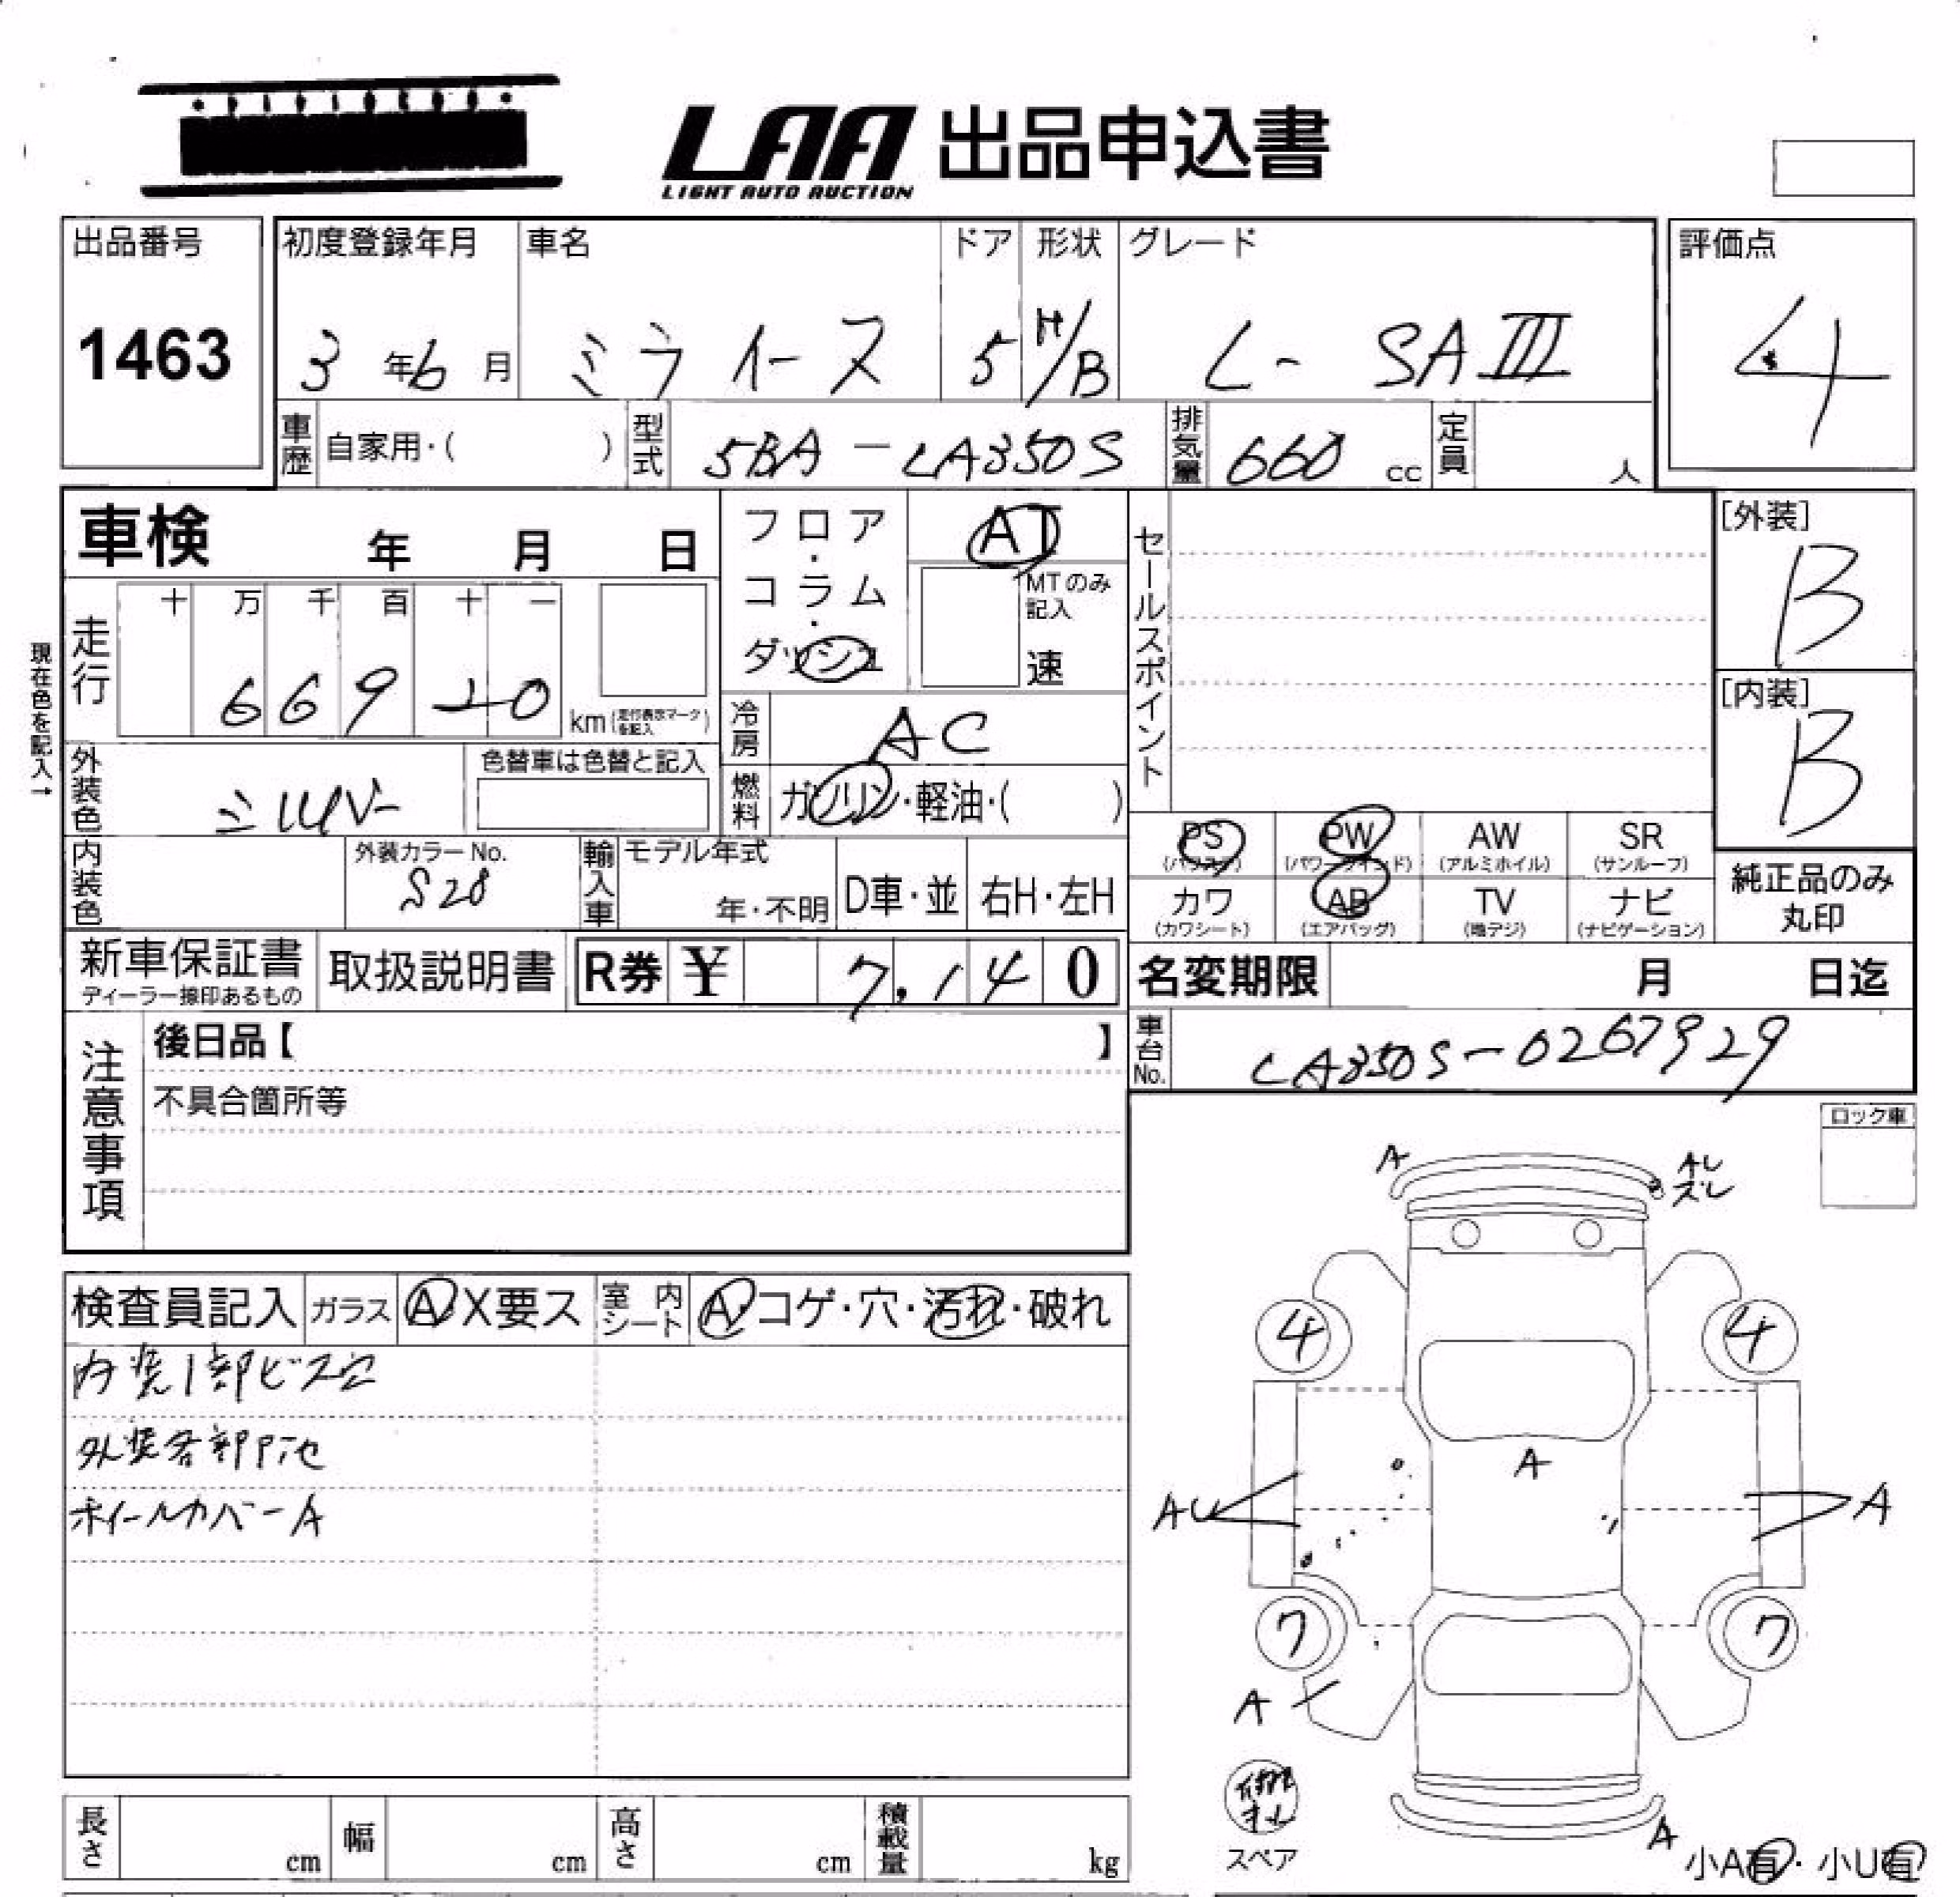 LAA 出品申込書
LIGHT AUTO AUCTION
出品番号 初度登録年月 車名 ドア 形状 グレード 評価点
1463 3年6月 ミライース 5 H/B L- SAⅢ 4
車歴 自家用・( ) 型式 5BA-LA350S 排気量 660 cc 定員 人
車検 年 月 日
フロア・コラム・ダッシュ
AT
MTのみ記入
速
セールスポイント
[外装]
B
現在色を記入→
走行 十 万 千 百 十 一
6 6 9 2 0 km (走行表示マークを記入)
[内装]
B
冷房 AC
外装色 シルバー 色替車は色替と記入
燃料 ガソリン・軽油・( )
PS (パワステ) PW (パワーウインド) AW (アルミホイル) SR (サンルーフ)
内装色 外装カラーNo. S28 輸入車 モデル年式 年・不明 D車・並 右H・左H
カワ (カワシート) AB (エアバッグ) TV (地デジ) ナビ (ナビゲーション)
純正品のみ
丸印
新車保証書 取扱説明書 R券 ¥ 7,140 名変期限 月 日迄
ディーラー捺印あるもの
注意事項
後日品【 】
車台No. LA350S-0267929
不具合箇所等
ロック車
A
AU
ズレ
検査員記入 ガラス A X要ス 室内シート A コゲ・穴・汚れ・破れ
内装1部ビス穴
外装各部P池
ホイールカバーA
4 4
A
AU A
7 7
A
スペア
A
小A有・小U有
長さ cm 幅 cm 高さ cm 積載量 kg